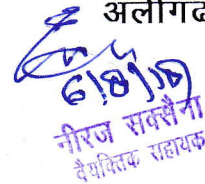 अलीगढ
नीरज सक्सैना
वैयक्तिक सहायक